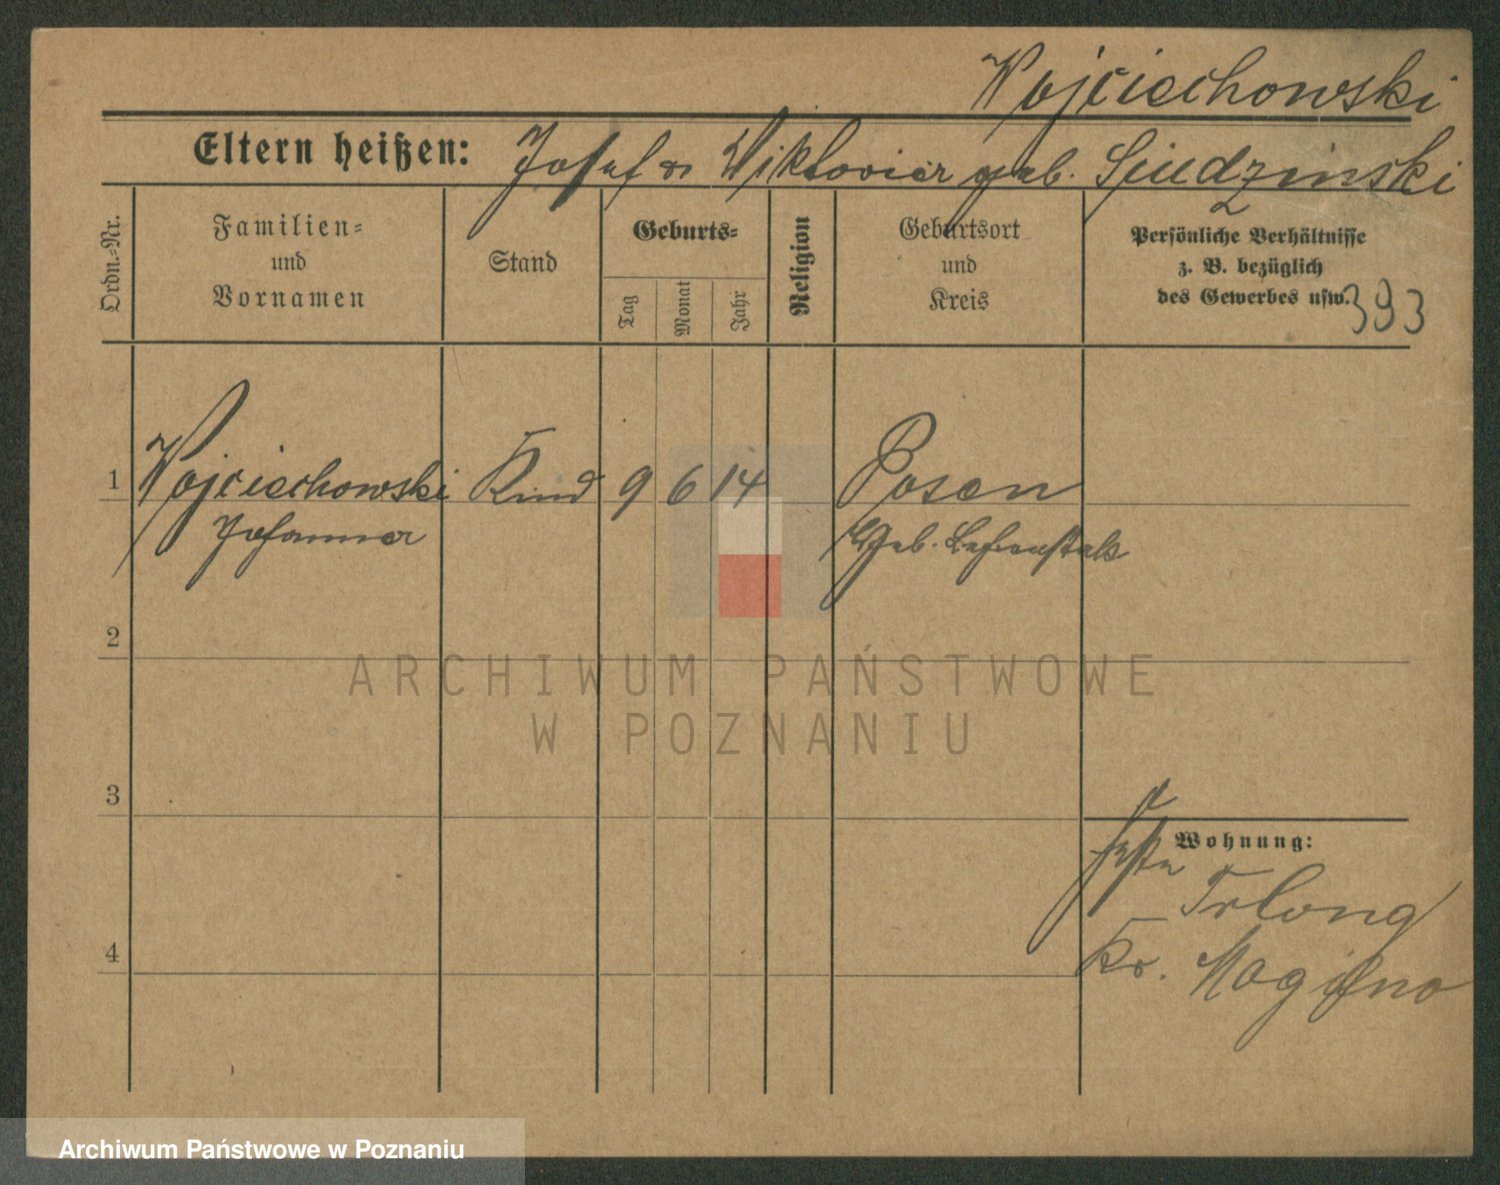 Wojciechowski
Eltern heißen: Josef u Wiktoria geb. Siudzinski
Ordn.-Nr.
Familien-
und
Vornamen
Stand
Geburts-
Tag
Monat
Jahr
Religion
Geburtsort
und
Kreis
Persönliche Verhältnisse
z. B. bezüglich
des Gewerbes usw.
393
1 Wojciechowski Kind 9 6 14 Posen
Johanna Geb.
2
ARCHIWUM PAŃSTWOWE
W POZNANIU
3
Wohnung:
Trlong
4 Kr. Mogilno
Archiwum Państwowe w Poznaniu